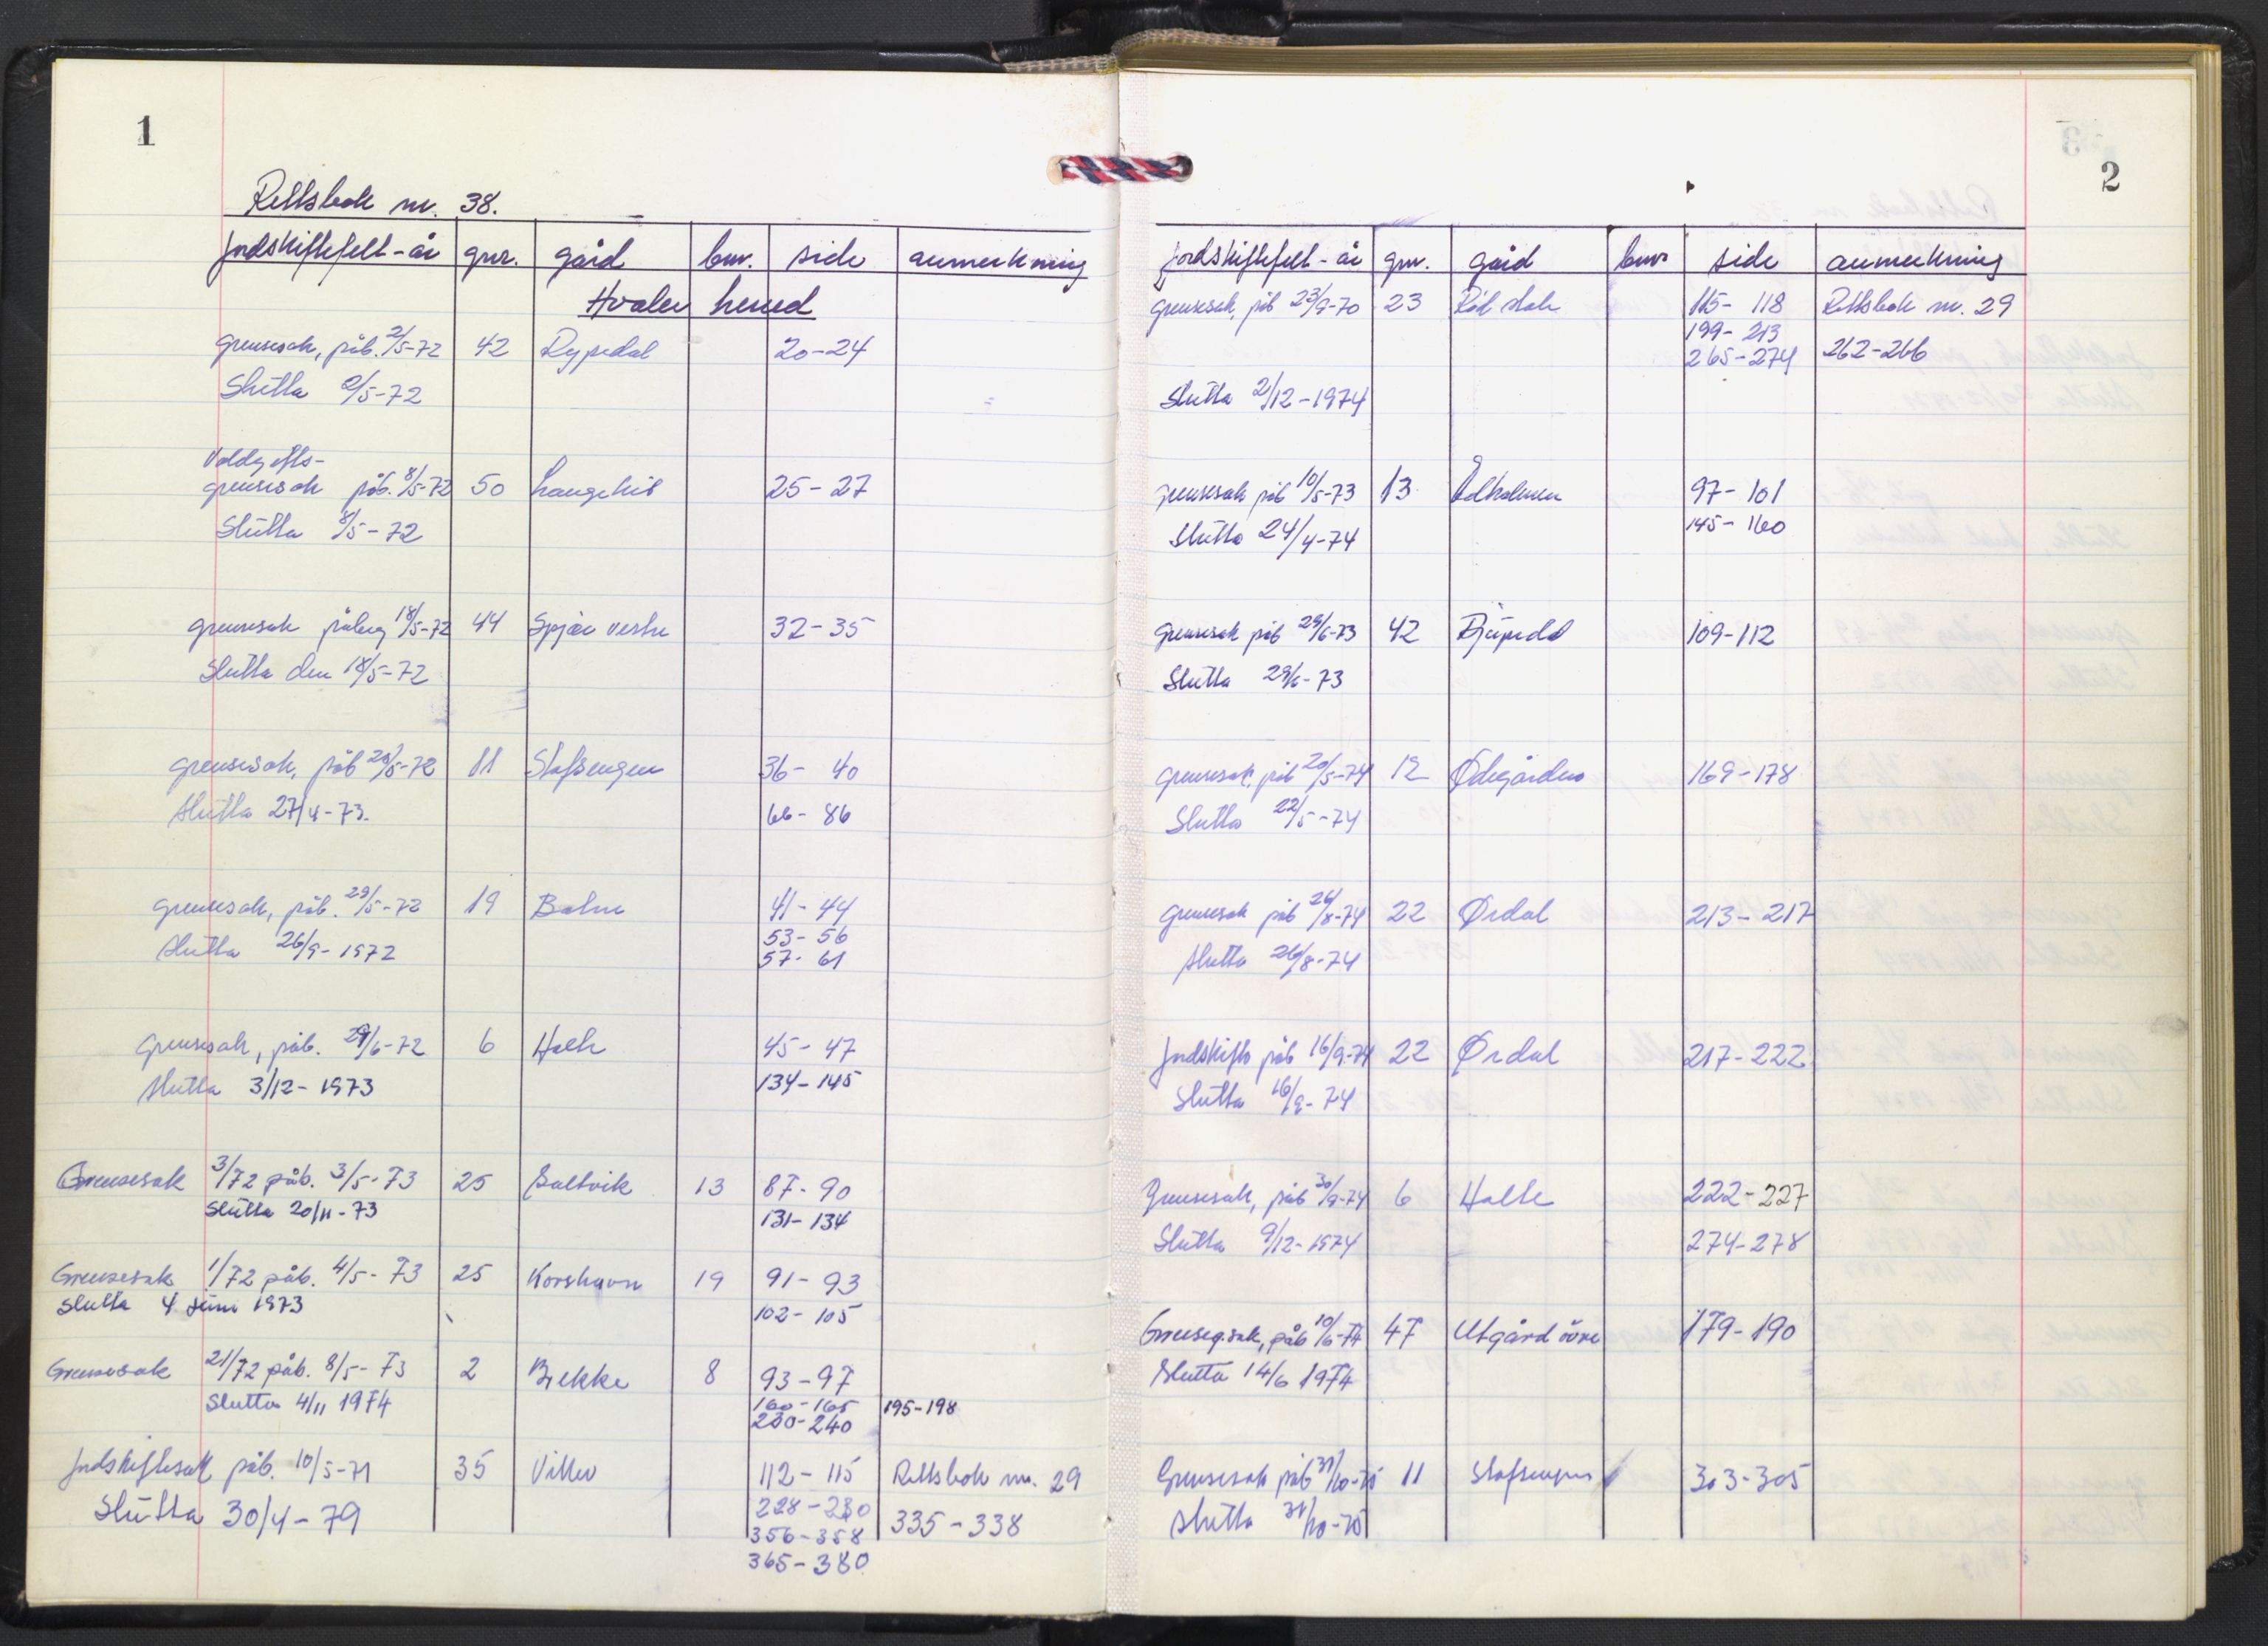 1
Rettsbok nr. 38.
Jordskiftefelt-år gnr. gård bnr. side anmerkning
Hvaler herred
Grensesak, påb. 2/5-72 42 Rypedal 20-24
Slutta 2/5-72
Voldgifts-
grensesak påb. 8/5-72 50 25-27
Slutta 8/5-72
Grensesak påbeg 18/5-72 44 Spjær vestre 32-35
Slutta den 18/5-72
Grensesak, påb 26/5-72 11 Stafsengen 36- 40
Slutta 27/4-73. 66- 86
Grensesak, påb. 29/5-72 19 Bølne 41- 44
Slutta 26/9-1972 53- 56
57- 61
Grensesak, påb. 29/6-72 6 Holte 45- 47
Slutta 3/12-1973 134-145
Grensesak 3/72 påb. 3/5-73 25 Saltvik 13 87-90
Slutta 20/11-73 131-134
Grensesak 1/72 påb. 4/5-73 25 Korshavn 19 91-93
Slutta 4 juni 1973 102-105
Grensesak 21/72 påb. 8/5-73 2 Bekke 8 93-97
Slutta 4/11 1974 160-165 195-198
230-240
Jordskiftesak påb. 10/5-71 35 Viker 112-115 Rettsbok nr. 29
Slutta 30/4-79 228-230 335-338
356-358
365-380
2
Jordskiftefelt-år gnr. gård bnr side anmerkning
Grensesak, påb 23/9-70 23 Rød 115-118 Rettsbok nr. 29
199-213
265-274 262-266
Slutta 2/12-1974
Grensesak påb 10/5-73 13 Edholmen 97-101
Slutta 24/4-74 145-160
Grensesak påb 29/6-73 42 109-112
Slutta 29/6-73
Grensesak, påb 20/5-74 12 Ødegården 169-178
Slutta 22/5-74
Grensesak påb 26/8-74 22 Ørdal 213-217
Slutta 26/8-74
Jordskifte påb 16/9-74 22 Ørdal 217-222
Slutta 16/9-74
Grensesak, påb 30/9-74 6 Holte 222-227
Slutta 9/12-1974 274-278
Grenseg.sak, påb 10/6-74 47 Utgård övre 179-190
Slutta 14/6 1974
Grensesak påb 31/10-75 11 Stafsengen 303-305
Slutta 31/10-75